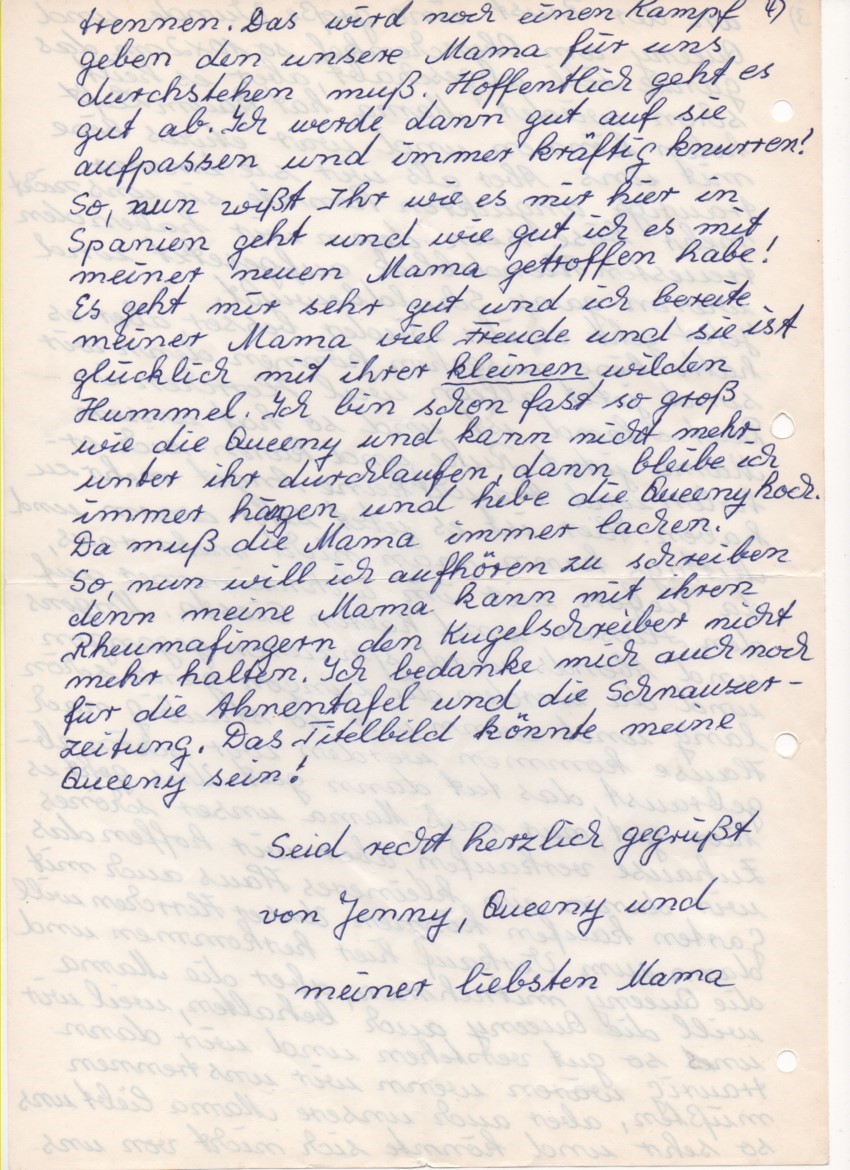 trennen. Das wird noch einen Kampf 4)
geben den unsere Mama für uns
durchstehen muß. Hoffentlich geht es
gut ab. Ich werde dann gut auf sie
aufpassen und immer kräftig knurren!
So, nun wißt Ihr wie es mir hier in
Spanien geht und wie gut ich es mit
meiner neuen Mama getroffen habe!
Es geht mir sehr gut und ich bereite
meiner Mama viel Freude und sie ist
glücklich mit ihrer kleinen wilden
Hummel. Ich bin schon fast so groß
wie die Queeny und kann nicht mehr
unter ihr durchlaufen, dann bleibe ich
immer hängen und hebe die Queeny hoch.
Da muß die Mama immer lachen.
So, nun will ich aufhören zu schreiben
denn meine Mama kann mit ihren
Rheumafingern den Kugelschreiber nicht
mehr halten. Ich bedanke mich auch noch
für die Ahnentafel und die Schnauzer-
zeitung. Das Titelbild könnte meine
Queeny sein!
Seid recht herzlich gegrüßt
von Jenny, Queeny und
meiner liebsten Mama